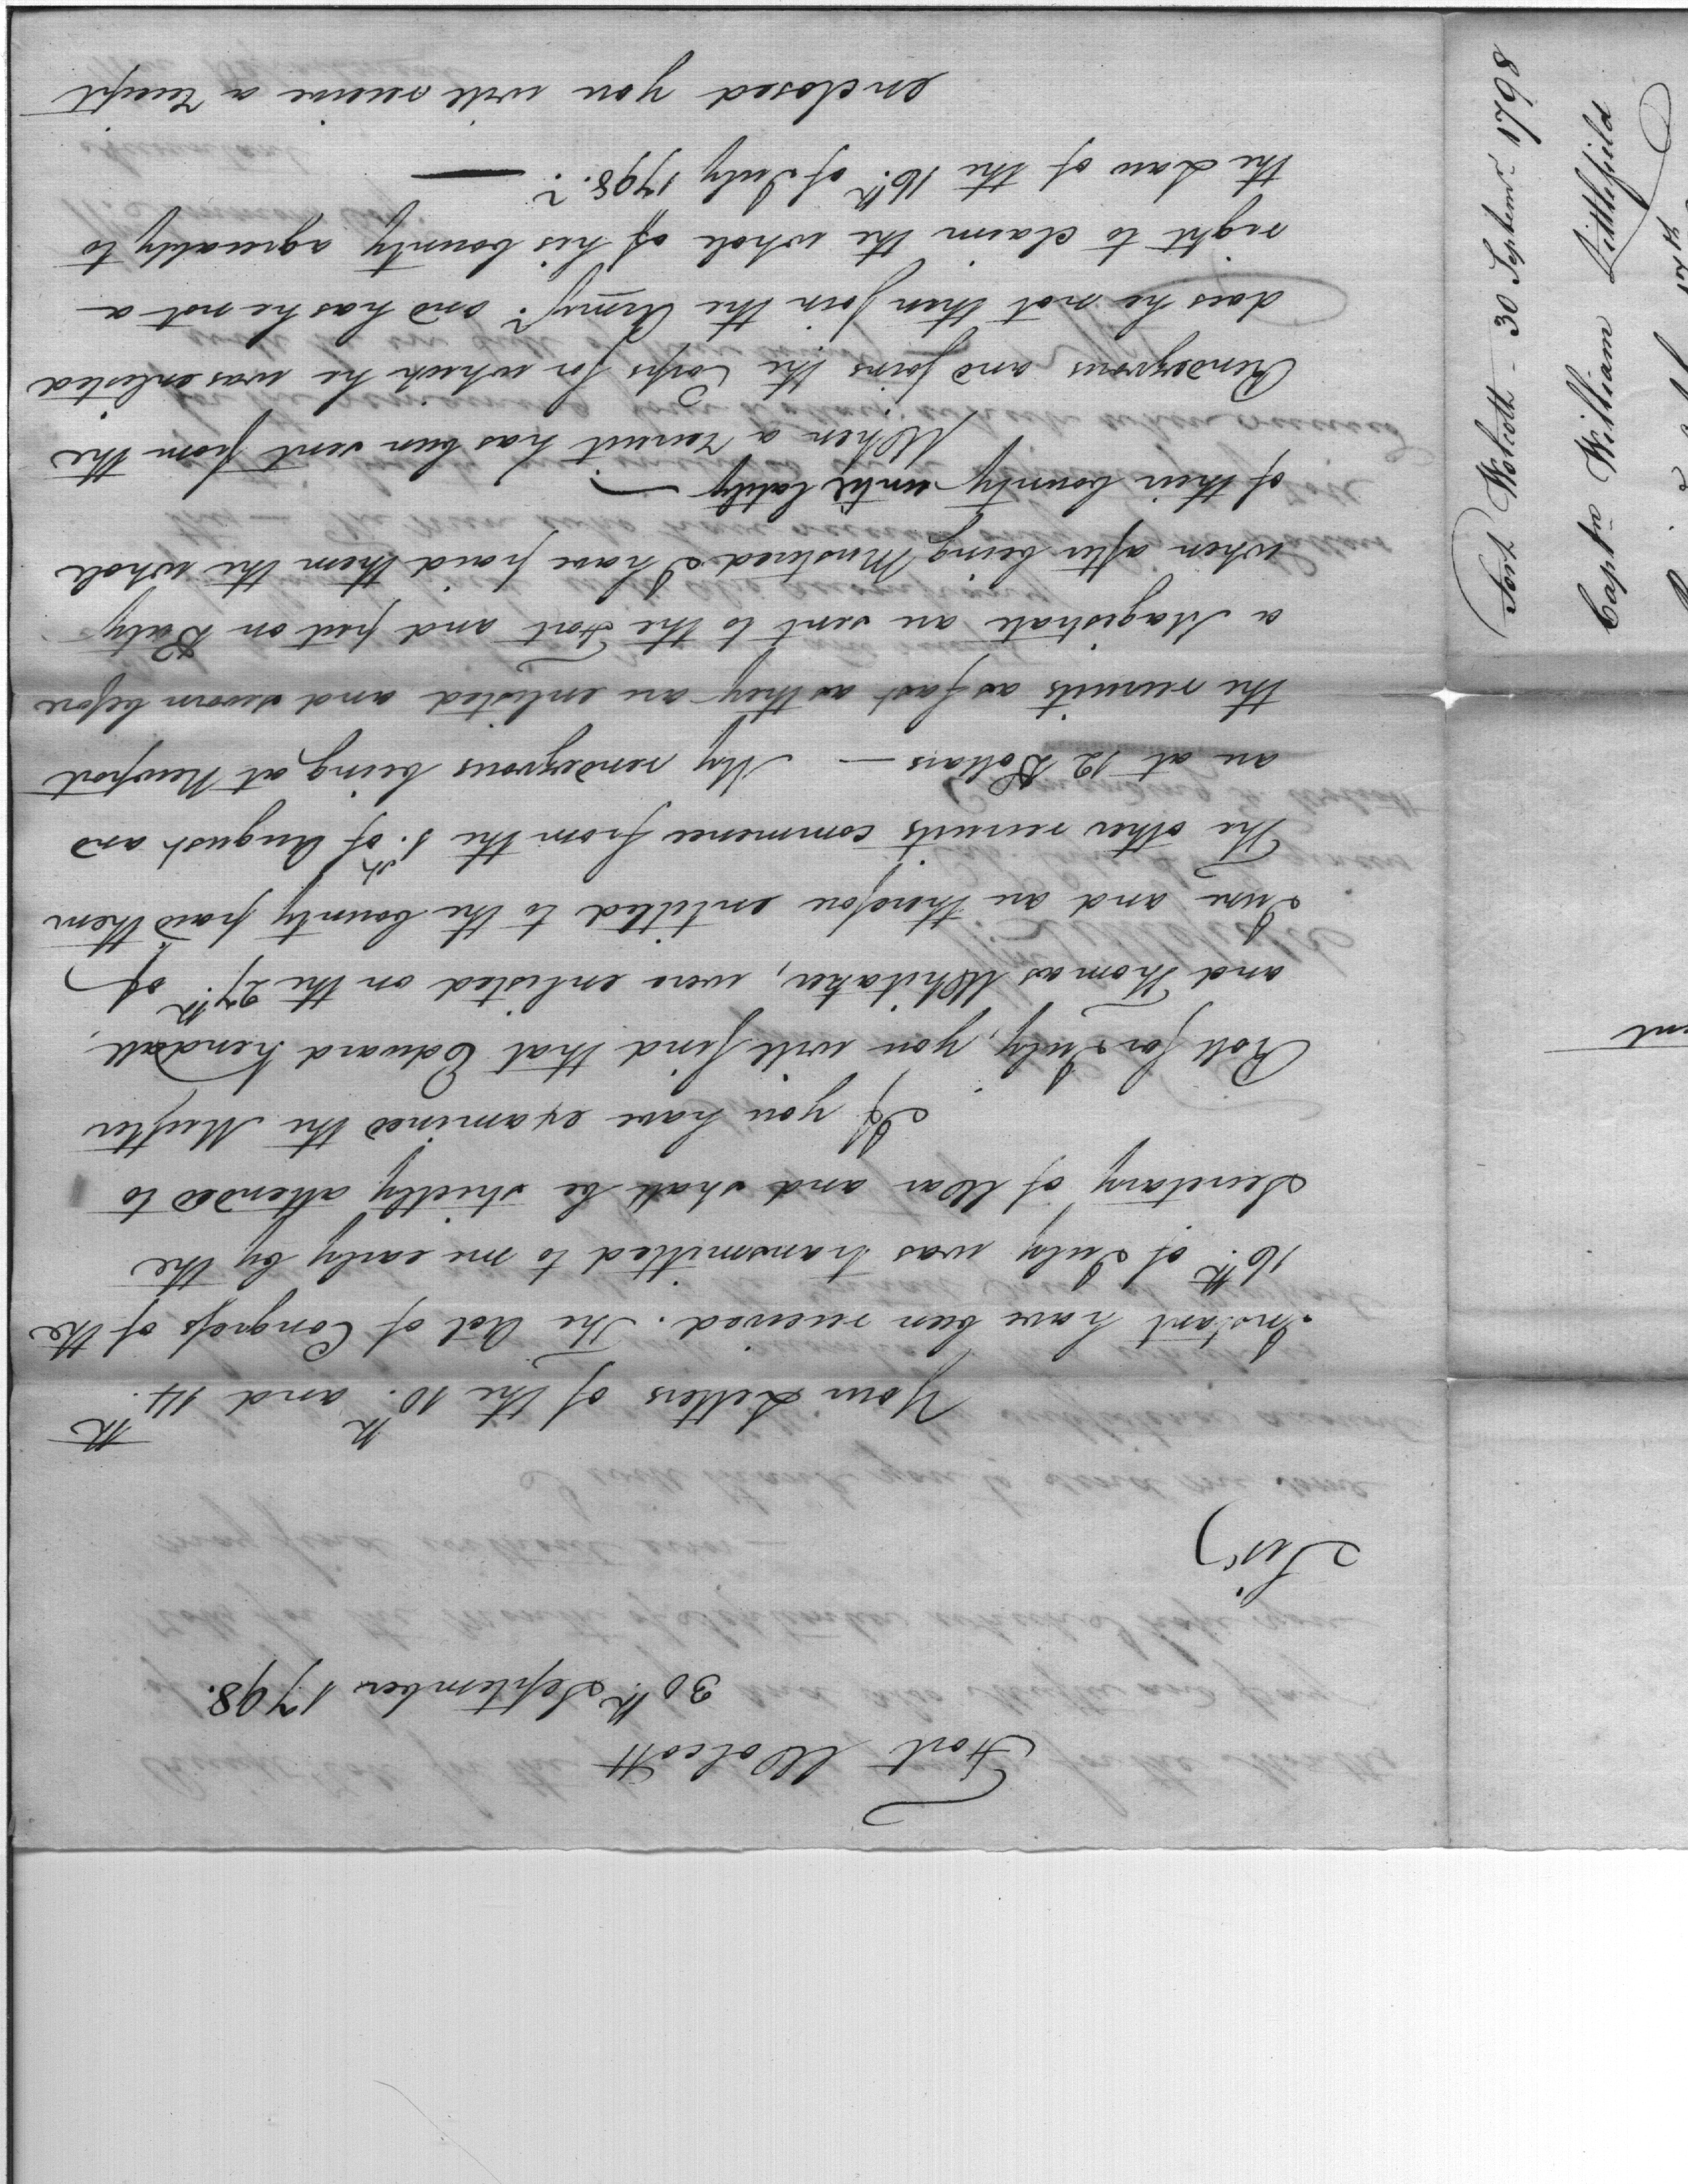 Fort Wolcott
30th September 1798.
Sir,
Your Letters of the 10th and 14th
Instant have been received. The Act of Congress of the
16th of July was transmitted to me early by the
Secretary of War and shall be strictly attended to
If you have examined the Muster
Roll for July, you will find that Edward Kendall,
and Thomas Whitaker, were enlisted on the 27th of
June and are therefore entitled to the bounty paid them
The other recruits commence from the 1st of August and
are at 12 Dollars — My rendezvous being at Newport
the recruits as fast as they are enlisted and sworn before
a Magistrate are sent to the Fort and put on Duty
when after being Mustered I have paid them the whole
of their bounty until lately —
When a recruit has been sent from the
Rendezvous and joins the Corps for which he was enlisted
does he not then join the Army? and has he not a
right to claim the whole of his bounty agreeably to
the Law of the 16th of July 1798? —
enclosed you will receive a receipt
Fort Wolcott - 30 Septemr 1798
Captn William Littlefield